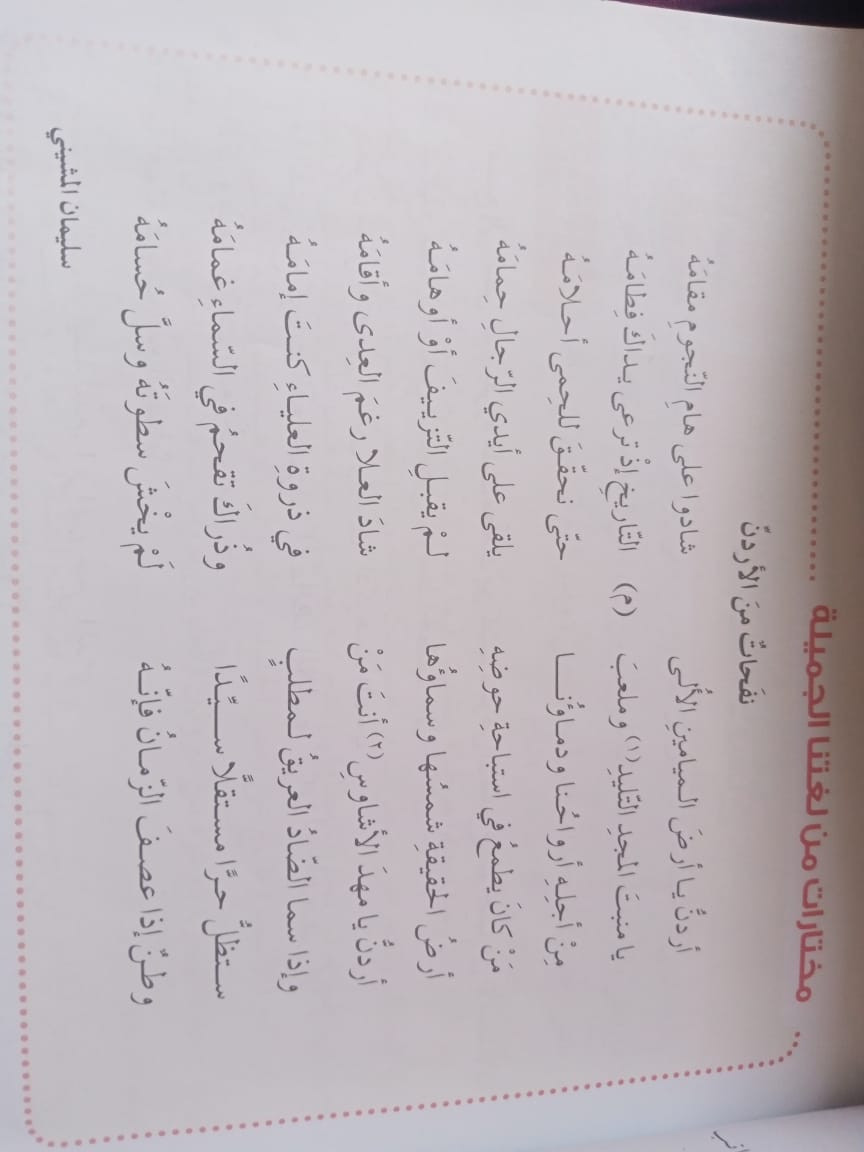 مختارات من لغتنا الجميلة
نفَحاتٌ منَ الأردنّ
أردنُّ يا أرضَ الميامينِ الأُلى شادوا على هامِ النّجومِ مقامَهُ
يا منبتَ المجدِ التّليدِ(١) وملعبَ (م) التّاريخِ إذْ ترعى يداكَ فِطامَهُ
مِنْ أجلِهِ أرواحُنا ودماؤُنا حتّى نحقّقَ للحِمى أحلامَهُ
مَنْ كانَ يطمعُ في استباحةِ حوضِهِ يلقى على أيدي الرّجالِ حِمامَهُ
أرضُ الحقيقةِ شمسُها وسماؤُها لمْ يقبلِ التّزييفَ أوْ أوهامَهُ
أردنُّ يا مهدَ الأشاوسِ(٢) أنتَ مَنْ شادَ العلا رغمَ العِدى وأقامَهُ
وإذا سما الضّادُ العريقُ لمطلبٍ في ذروةِ العلياءِ كنتَ إمامَهُ
ستظلُّ حرًّا مستقلًّا سيّدًا وذُراكَ تقحمُ في السّماءِ غمامَهُ
وطنٌ إذا عصفَ الزّمانُ فإنّهُ لَمْ يخْشَ سطوتَهُ وسلَّ حُسامَهُ
سليمان المشيني